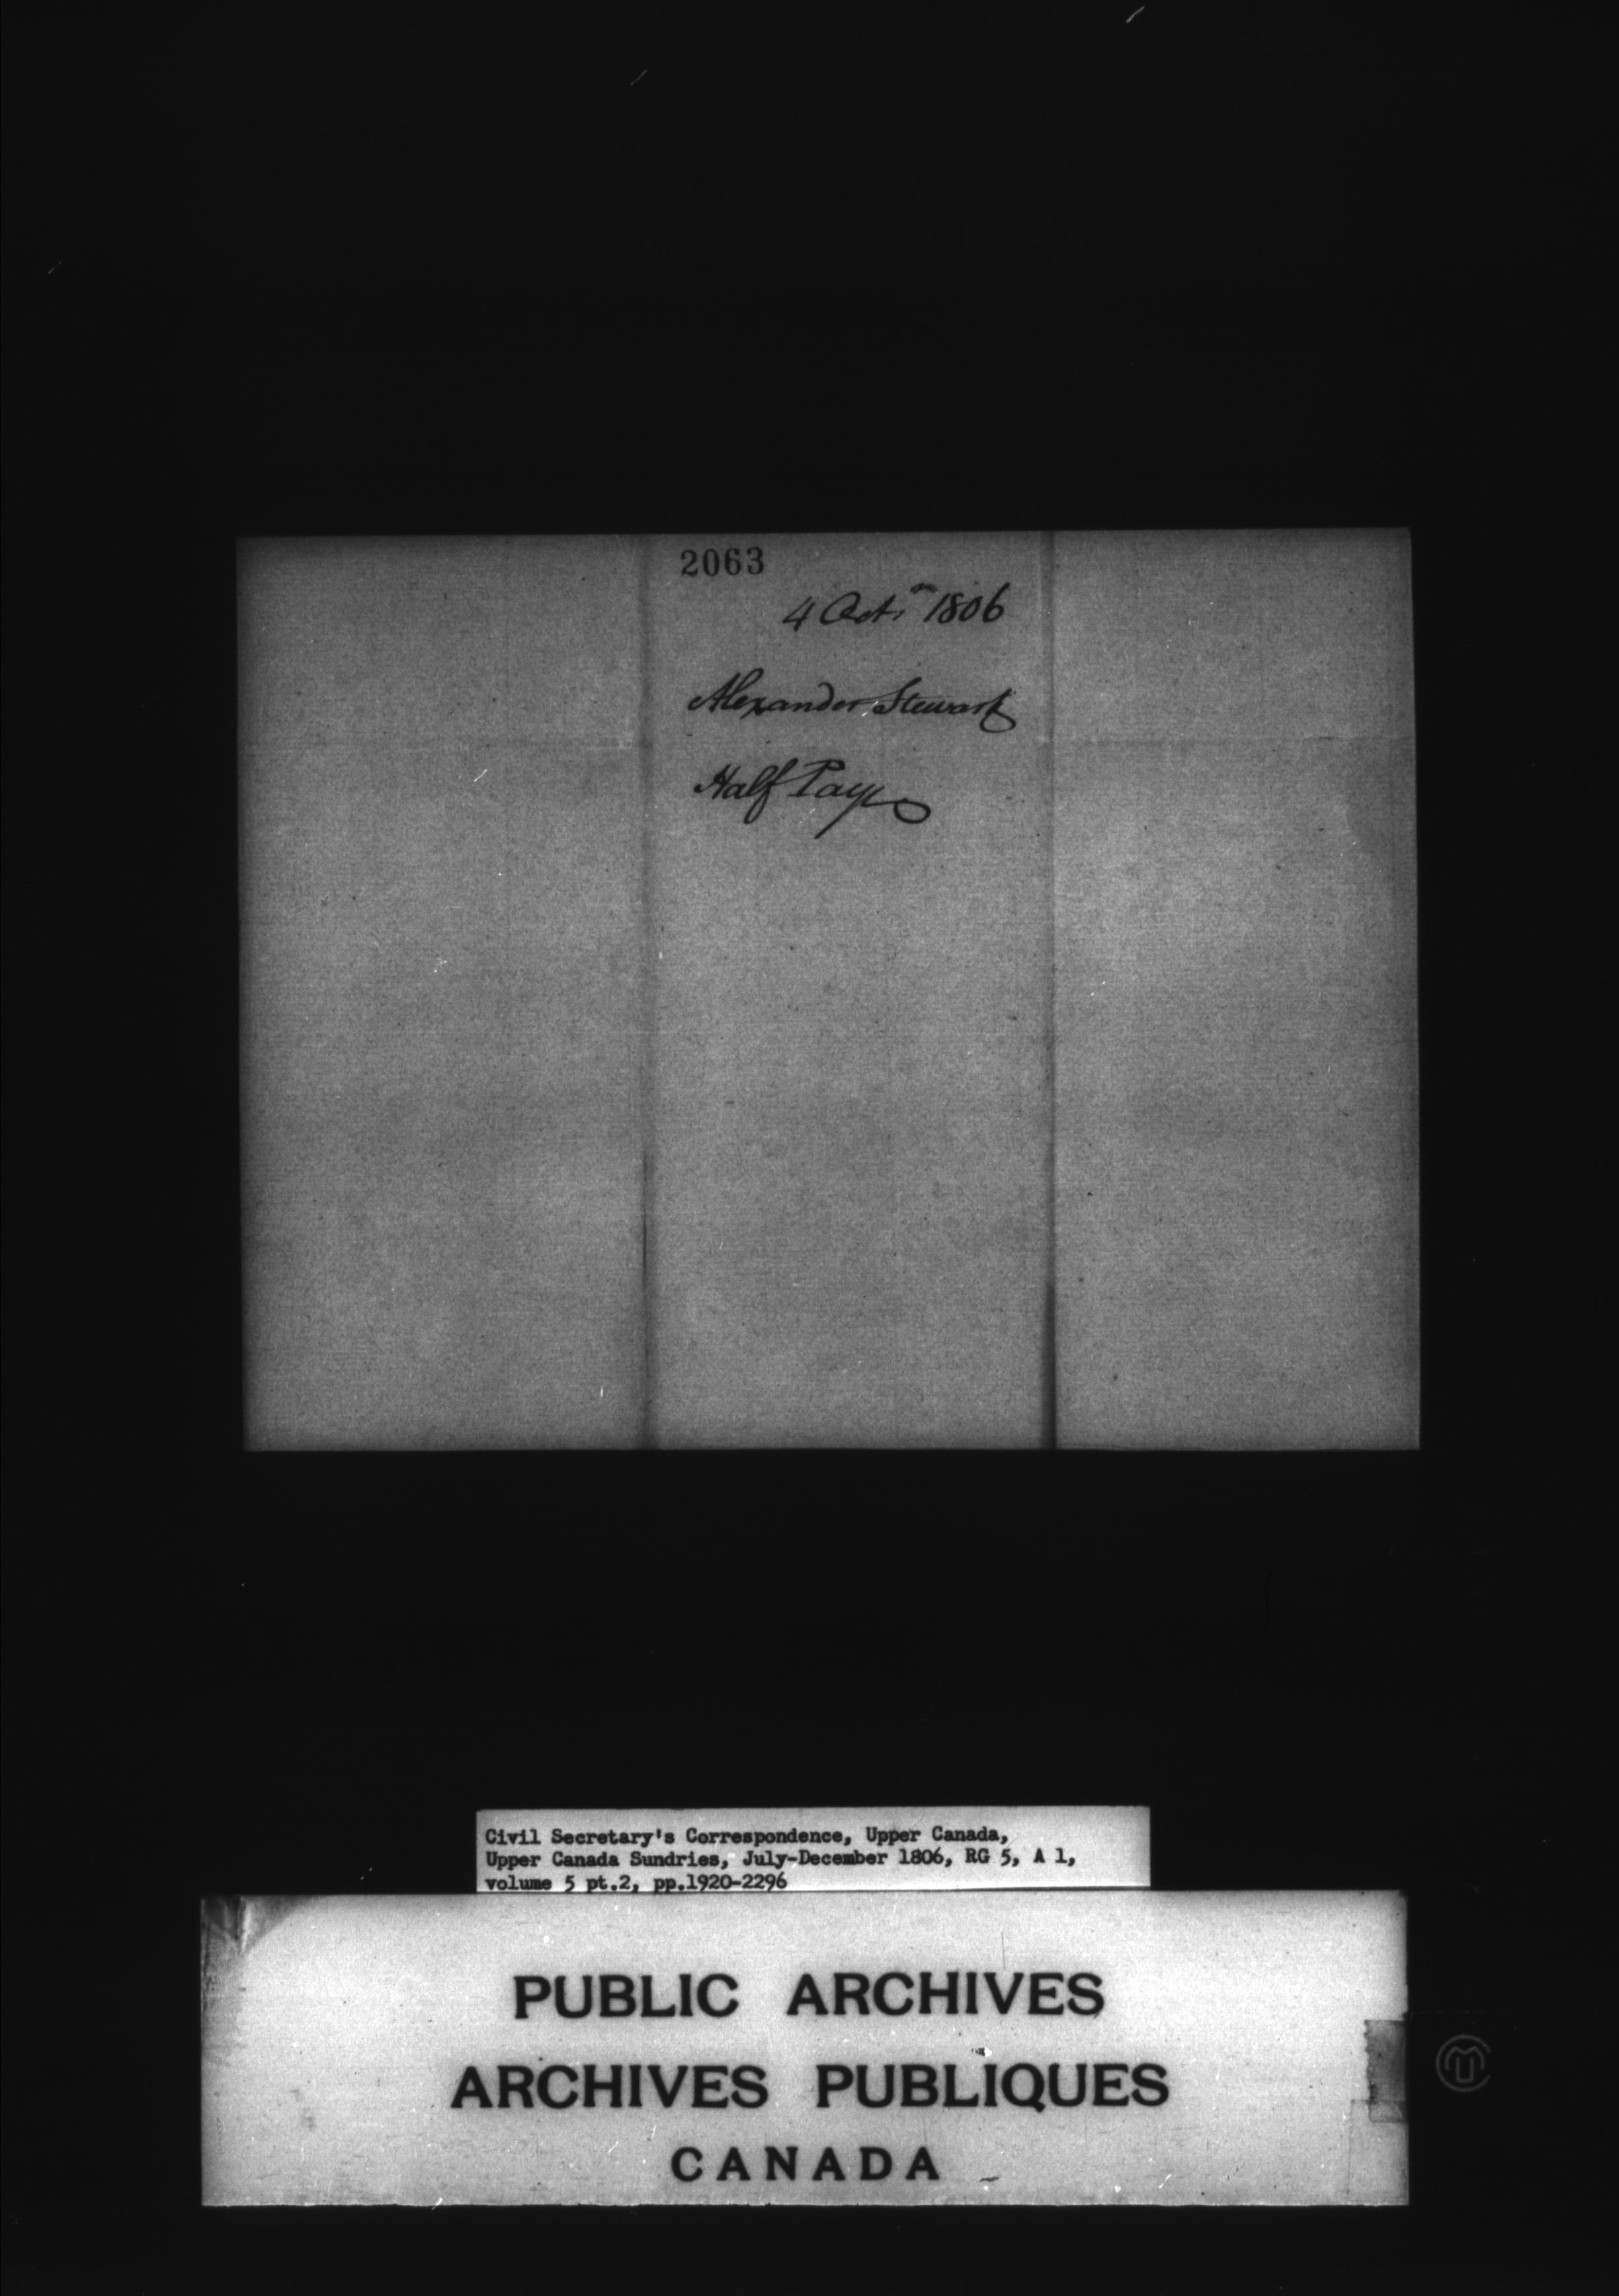 2063
4 Octr 1806
Alexander Stewart
Half Pay
Civil Secretary's Correspondence, Upper Canada,
Upper Canada Sundries, July-December 1806, RG 5, A 1,
volume 5 pt.2, pp.1920-2296
PUBLIC ARCHIVES
ARCHIVES PUBLIQUES
CANADA